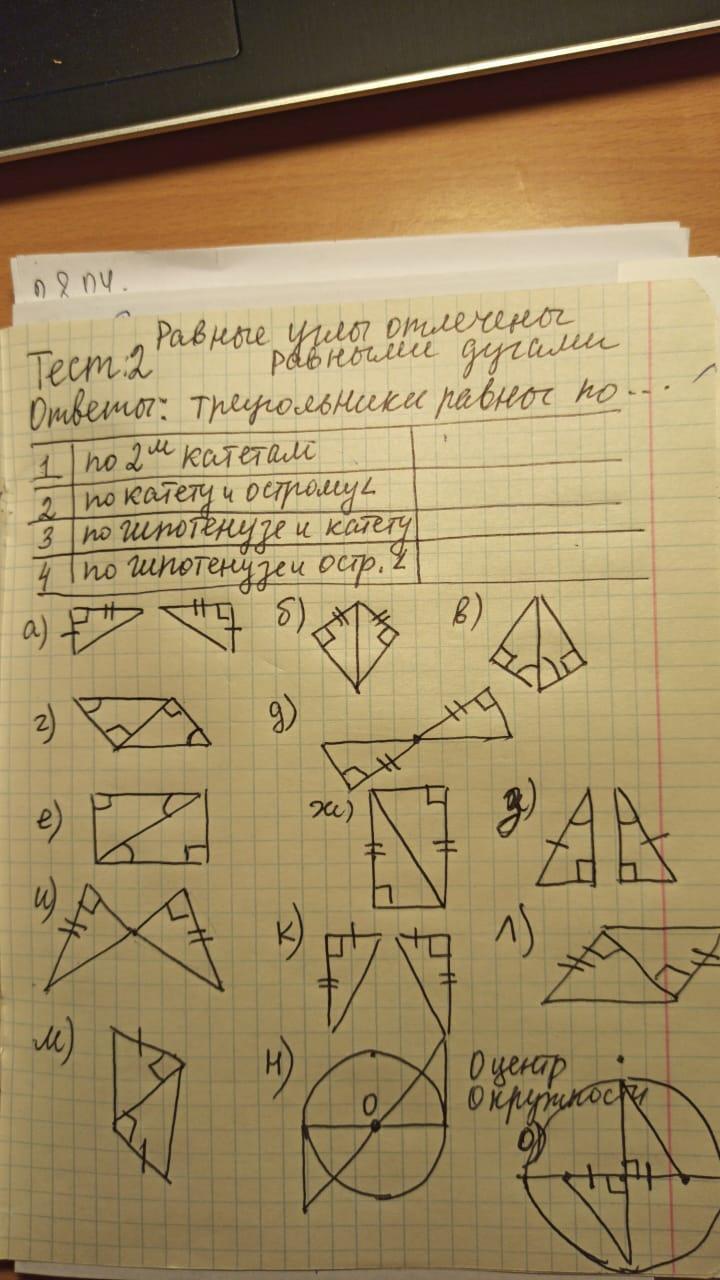 п 8 пч.
Равные углы отмечены
Тест:2 равными дугами
Ответы: треугольники равны по...
1 по 2м катетам
2 по катету и острому ∠
3 по гипотенузе и катету
4 по гипотенузе и остр. ∠
а) б) в)
г) д)
е) ж) з)
и) к) л)
м) н) О О центр
окружности
о)